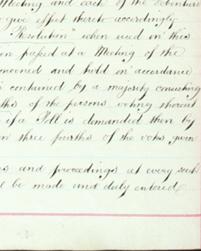 Meeting and each of the Debenture
give effect thereto accordingly
Resolution" when used in this
passed at a Meeting of the
convened and held in accordance
contained by a majority consisting
of the persons voting thereat
if a Poll is demanded then by
three fourths of the votes given
and proceedings at every such
be made and duly entered